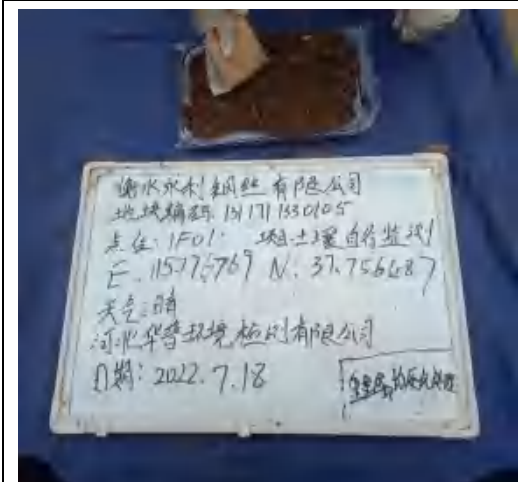 衡水永利钢丝有限公司
地块编码 1311711330105
点位:1F01: 项:土壤自行监测
E. 115.776769 N: 37.756687
天气:晴
河北华普环境检测有限公司
日期:2022.7.18